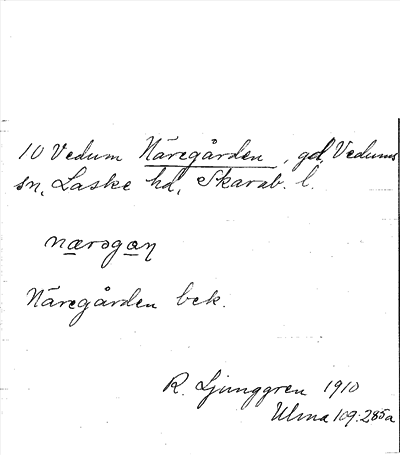 10 Vedum Näregården, gd, Vedums
sn, Laske hd, Skarab. l.
nærogaŋ
Näregården bek.
R. Ljunggren 1910
Ulma 109:285a